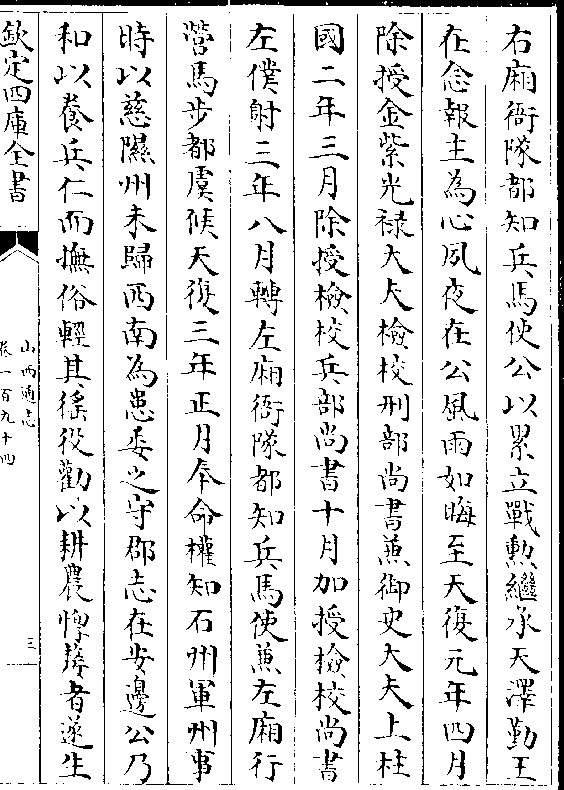 右廂衙隊都知兵馬使公以累立戰勲繼承天澤勤王
在念報主為心夙夜在公風雨如晦至天復元年四月
除授金紫光禄大夫檢校刑部尚書兼御史大夫上柱
國二年三月除授檢校兵部尚書十月加授檢校尚書
左僕射三年八月轉左廂衙隊都知兵馬使兼左廂行
營馬步都虞候天復三年正月奉命權知石州軍州事
時以慈隰州未歸西南為患委之守郡志在安邊公乃
和以養兵仁而撫俗輕其徭役勸以耕農惸嫠者遂生
欽定四庫全書
山西通志
卷一百九十四
三